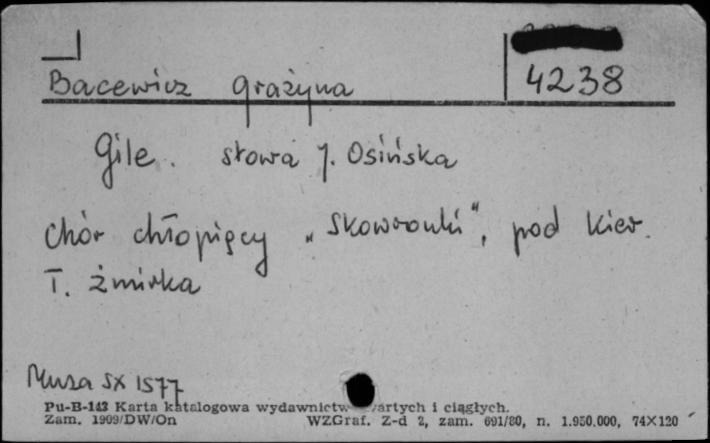 Bacewicz Grażyna
4238
Gile. słowa J. Osińska
Chór chłopięcy „Skowronki", pod kier.
T. Żmirka
Muza SX 1577
Pu-B-143 Karta katalogowa wydawnictw i ciągłych.
Zam. 1909/DW/On WZGraf. Z-d 2, zam. 691/80, n. 1.950.000, 74X120